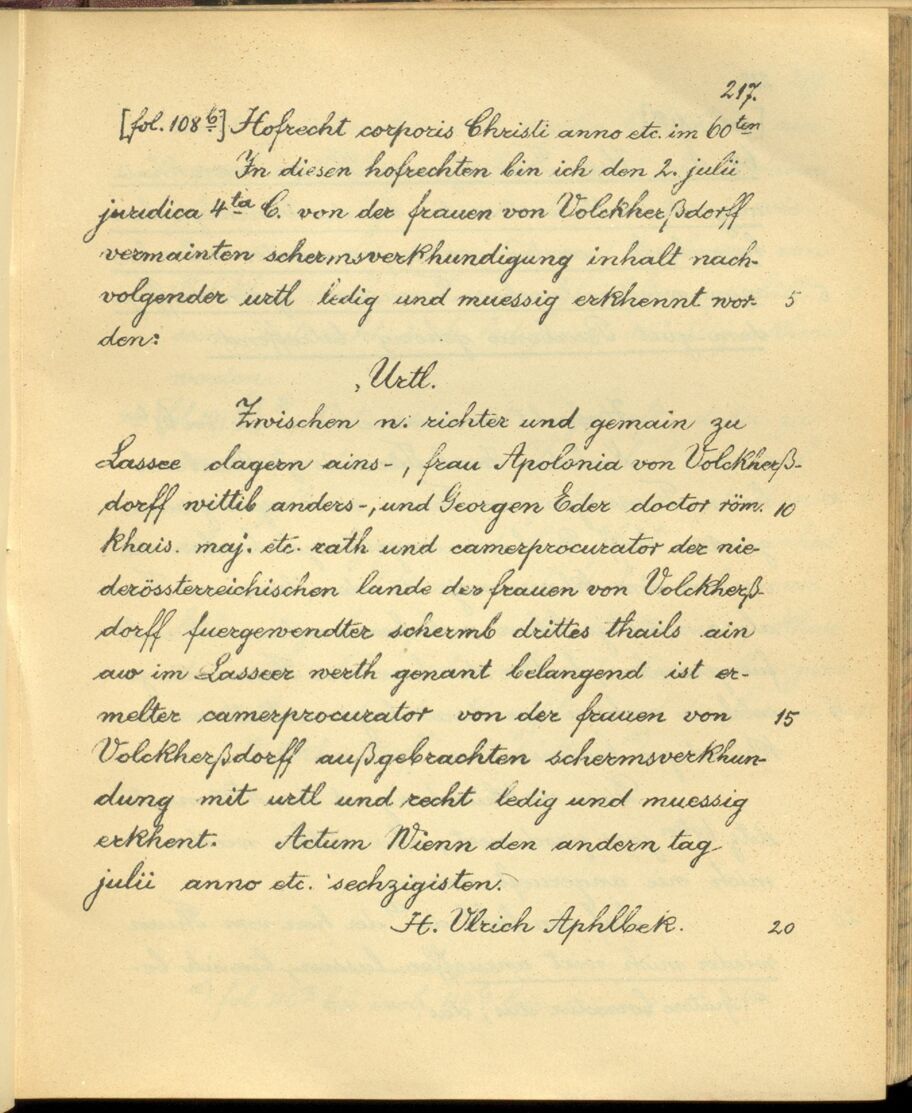 217.
[fol. 108 b] Hofrecht corporis Christi anno etc. im 60ten
In diesen hofrechten bin ich den 2. julii
juridica 4ta C. von der frauen von Volckherßdorff
vermainten schermsverkhundigung inhalt nach-
volgender urtl ledig und muessig erkhennt wor- 5
den:
Urtl.
Zwischen n. richter und gemain zu
Lassee clagern ains-, frau Apolonia von Volckherß-
dorff wittib anders-, und Georgen Eder doctor röm. 10
khais. maj. etc. rath und camerprocurator der nie-
derössterreichischen lande der frauen von Volckherß-
dorff fuergewendter schermb drittes thails ain
aw im Lasseer werth genant belangend ist er-
melter camerprocurator von der frauen von 15
Volckherßdorff außgebrachten schermsverkhun-
dung mit urtl und recht ledig und muessig
erkhent. Actum Wienn den andern tag
julii anno etc. sechzigisten.
H. Ulrich Aphlbek. 20